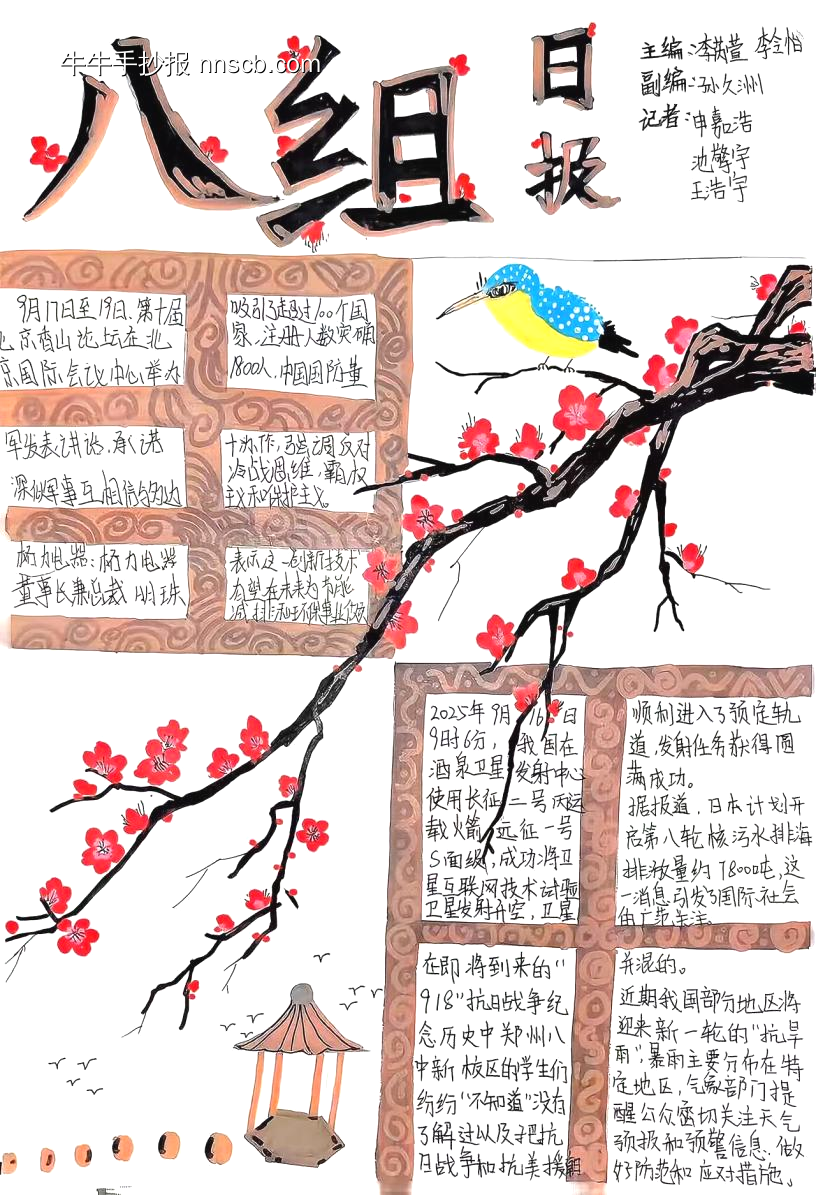 牛牛手抄报 nnscb.com
八组
日报
主编:李芮萱 李金怡
副编:孙久洲
记者:申嘉浩
池馨宇
王浩宇
9月17日至19日、第十届
北京香山论坛在北
京国际会议中心举办
吸引了超过100个国
家,注册人数突确
1800人,中国国防董
军发表讲话,承诺
深似军事互相信与为边
十办作,强调反对
冷战思维,霸权
主义和保护主义。
杨力电器:杨力电器
董事长兼总裁 明珠
表示这一创新技术
有望在未来为节能
减排和环保事业做
2025年9月16日
9时6分,我国在
酒泉卫星发射中心
使用长征二号丙运
载火箭 远征一号
S面级,成功将卫
星互联网技术试验
卫星发射升空,卫星
顺利进入了预定轨
道,发射任务获得圆
满成功。
据报道,日本计划开
启第八轮核污水排海
排放量约7800吨,这
一消息引发了国际社会
由广泛关注。
在即将到来的"
918"抗日战争纪
念历史中郑州八
中新校区的学生们
纷纷"不知道"没有
了解过以及把抗
日战争和抗美援朝
弄混的。
近期我国部分地区将
迎来新一轮的"抗旱
雨",暴雨主要分布在特
定地区,气象部门提
醒公众密切关注天气
预报和预警信息.做
好防范和应对措施。